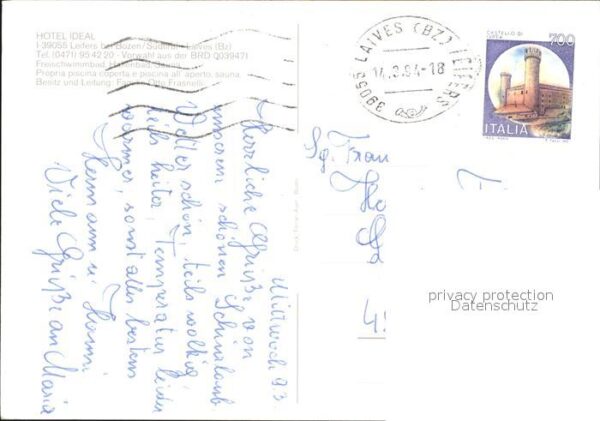 HOTEL IDEAL
I-39055 Leifers bei Bozen/Südtirol - Laives (Bz)
Tel. (0471) 95 42 20 - Vorwahl aus der BRD 0039471
Freischwimmbad, Hallenbad,
Propria piscina coperta e piscina all'aperto, sauna
Besitz und Leitung: Familie Otto Frasnelli
39055 LAIVES (BZ) LEIFERS
14.3.94-18
CASTELLO DI
700
ITALIA
Mittwoch 9.3.
Herrliche Grüße von
unserem schönen Skiurlaub.
Wetter schön, teils wolkig
teils heiter, Temperatur leider
wärmer, sonst alles bestens
Hermann u. Hanni
Viele Grüße an Maria
Sg. Frau
privacy protection
Datenschutz